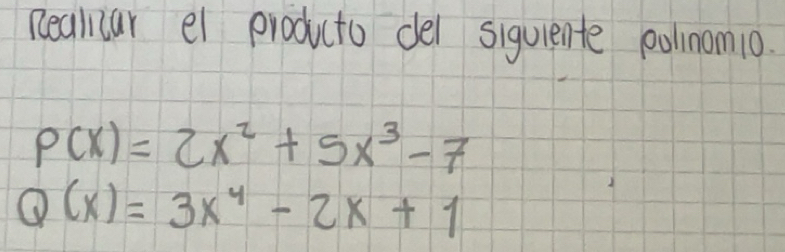 Realizar el producto del siguiente polinomio.
P(x) = 2x² + 5x³ - 7
Q(x) = 3x⁴ - 2x + 1